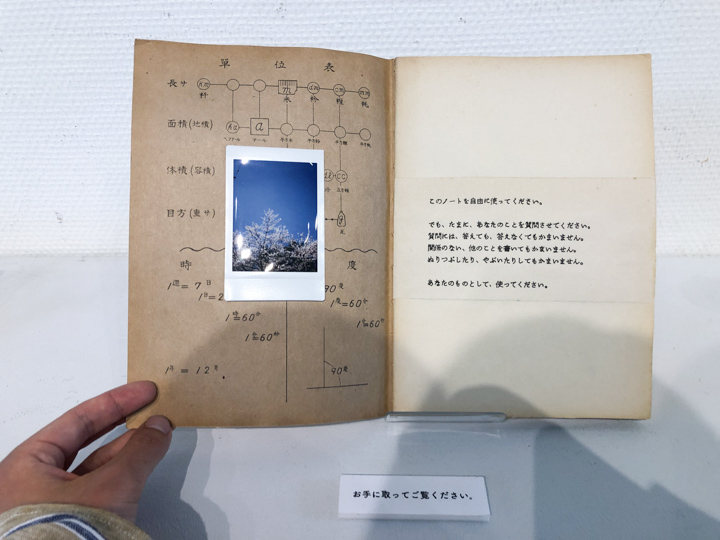 單位表
長サ km m dm cm mm
粁 米 粉 糎 粍
面積(地積) ha a
ヘクタール アール
体積(容積) dl cc
目方(重サ) g
瓦
時 度
1週 = 7日 90度
1日=2 1度=60分
1時=60分 1分=60秒
1分=60秒
1年 = 12月 90度
このノートを自由に使ってください。
でも、たまに、あなたのことを質問させてください。
質問には、答えても、答えなくてもかまいません。
関係のない、他のことを書いてもかまいません。
ぬりつぶしたり、やぶいたりしてもかまいません。
あなたのものとして、使ってください。
お手に取ってご覧ください。